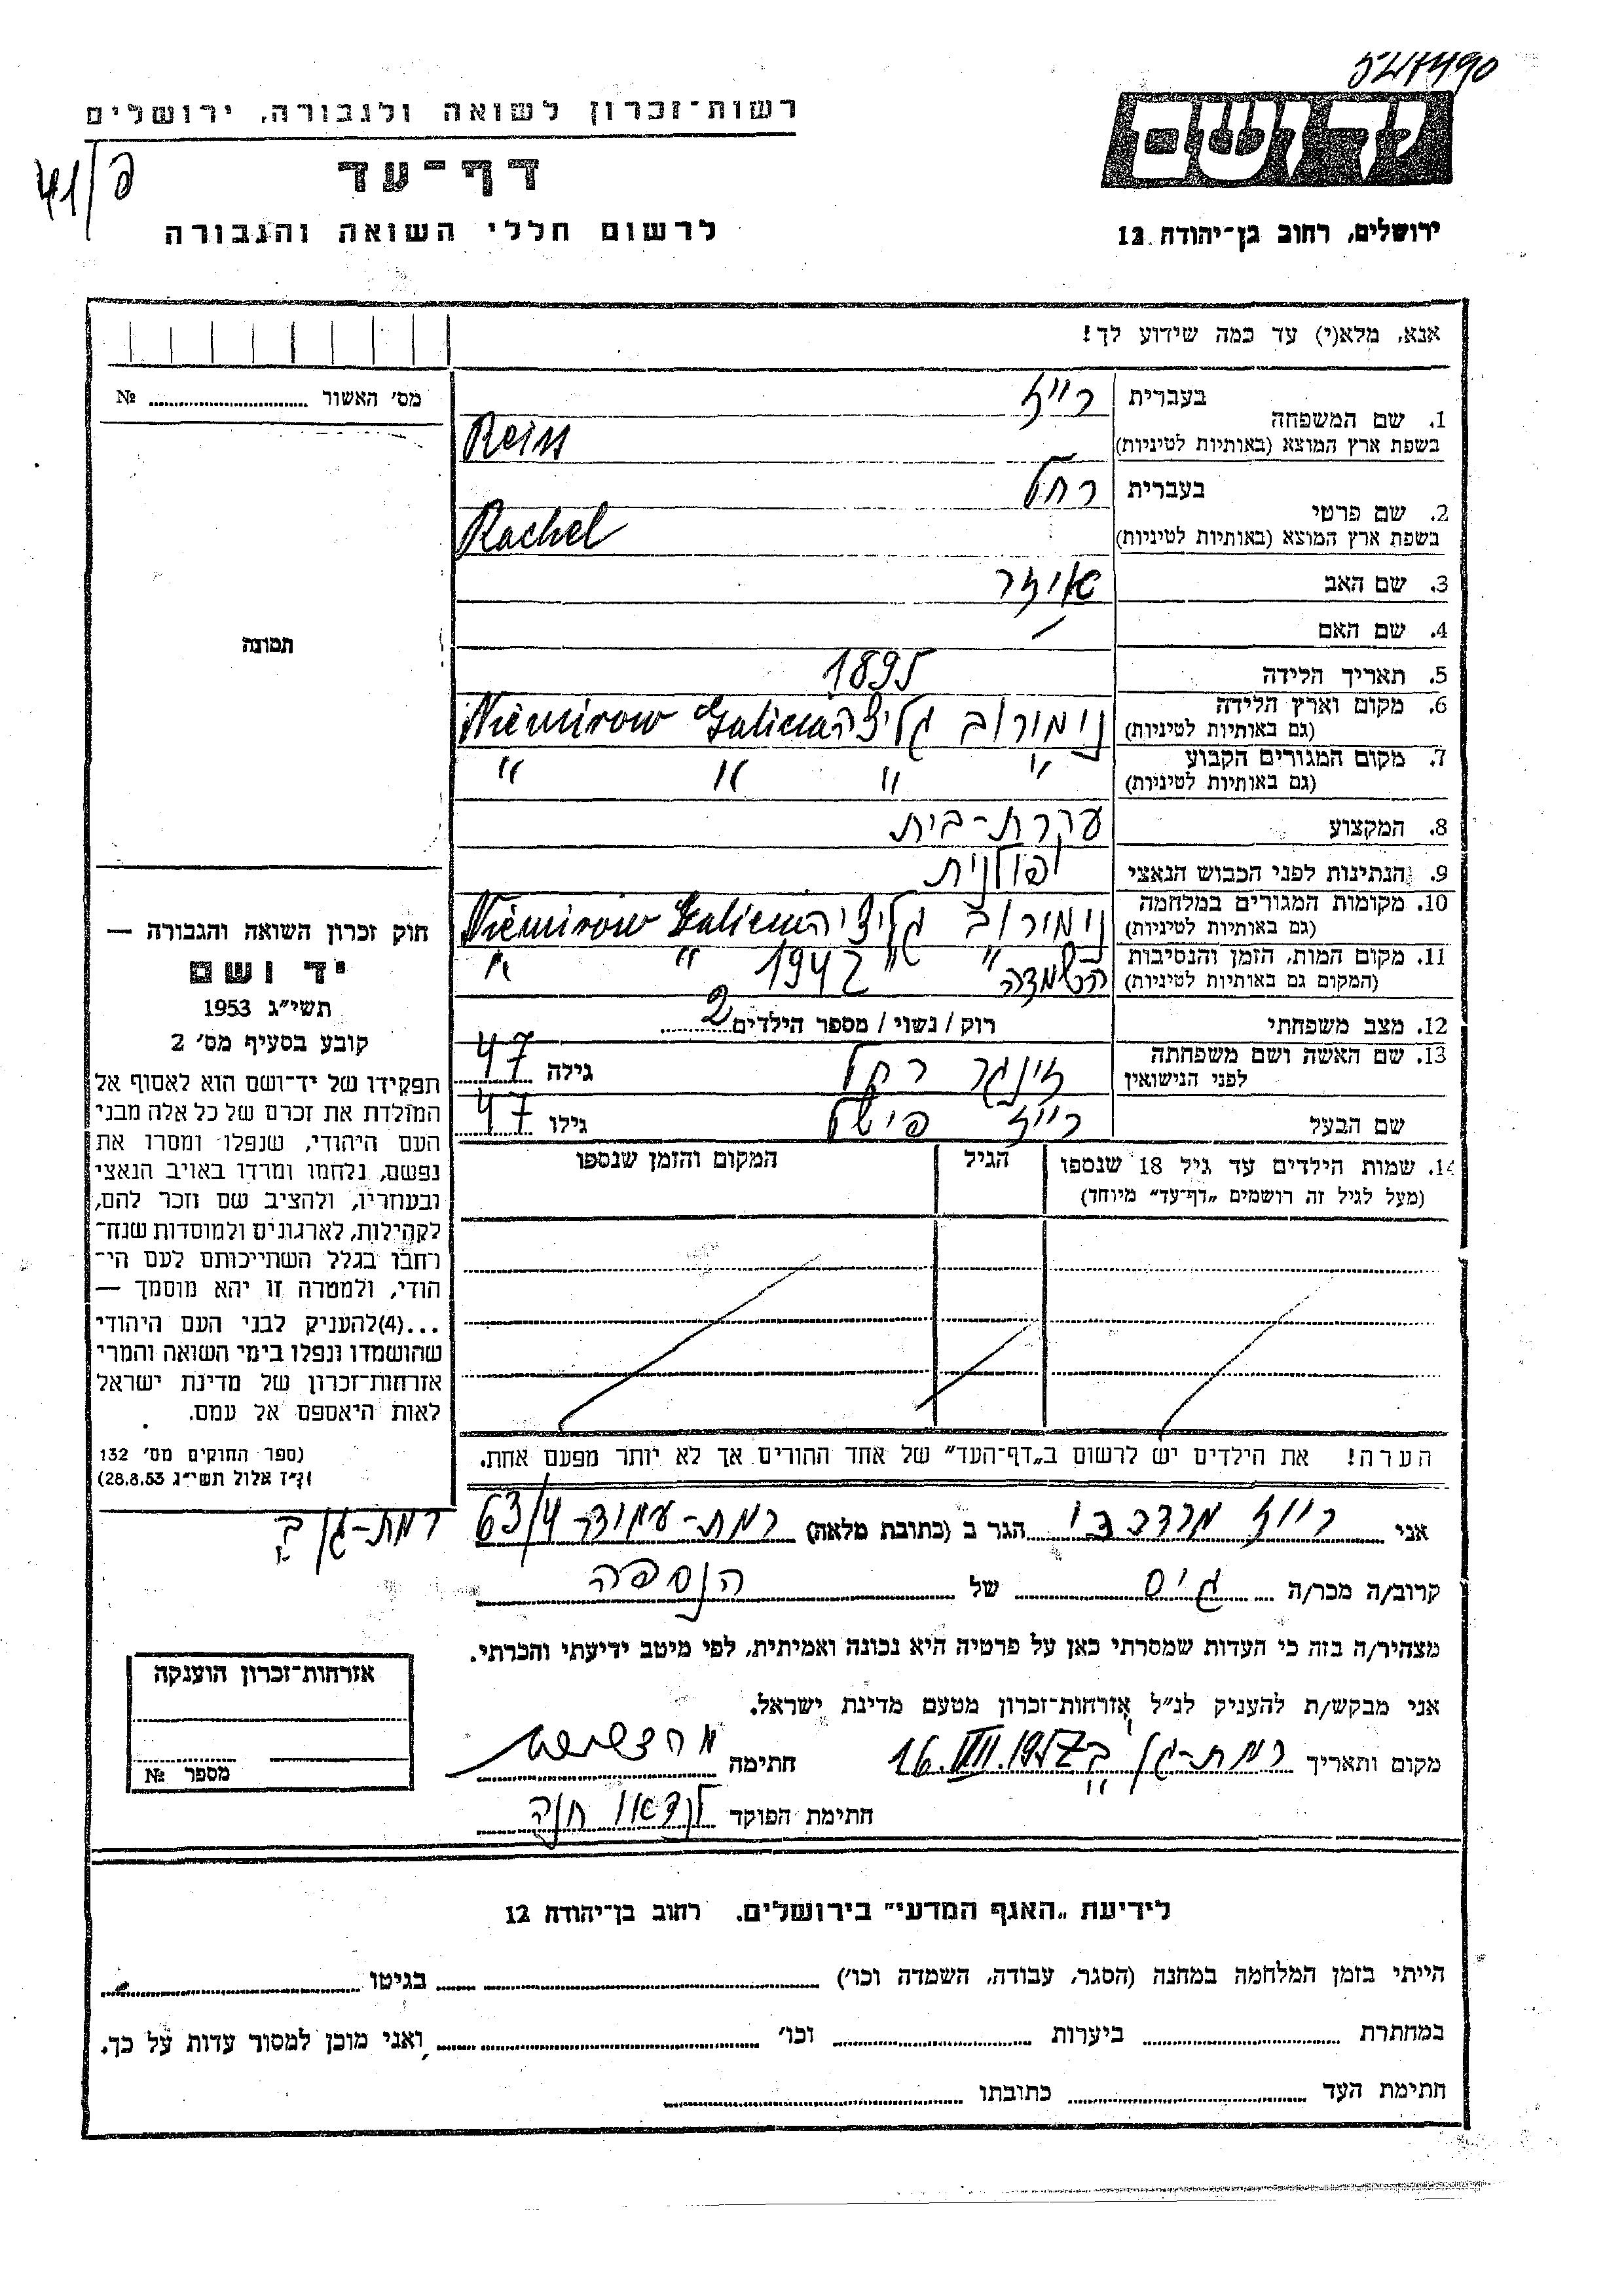 יד ושם
ירושלים, רחוב בן־יהודה 12
רשות־זכרון לשואה ולגבורה, ירושלים
דף־עד
לרשום חללי השואה והגבורה
אנא, מלא(י) עד כמה שידוע לך!
מס׳ האשור № 
1. שם המשפחה בעברית רייז
בשפת ארץ המוצא (באותיות לטיניות) Reiss
2. שם פרטי בעברית רחל
בשפת ארץ המוצא (באותיות לטיניות) Rachel
3. שם האב
4. שם האם –
5. תאריך הלידה 1895
6. מקום וארץ הלידה נימורוב גליציה Niemirow Galicia
(גם באותיות לטיניות)
7. מקום המגורים הקבוע " " " "
(גם באותיות לטיניות)
8. המקצוע עקרת-בית
9. הנתינות לפני הכבוש הנאצי פולנית
10. מקומות המגורים במלחמה נימורוב גליציה Niemirow Galicia
(גם באותיות לטיניות)
11. מקום המות, הזמן והנסיבות " " 1942 " "
(המקום גם באותיות לטיניות) השמדה
12. מצב משפחתי רוק / נשוי / מספר הילדים 2
13. שם האשה ושם משפחתה זינגר רחל גילה 47
לפני הנישואין
שם הבעל רייז פישל גילו 47
14. שמות הילדים עד גיל 18 שנספו הגיל המקום והזמן שנספו
(מעל לגיל זה רושמים „דף־עד" מיוחד)
הערה! את הילדים יש לרשום ב„דף־העד" של אחד ההורים אך לא יותר מפעם אחת.
תמונה
חוק זכרון השואה והגבורה —
יד ושם
תשי״ג 1953
קובע בסעיף מס׳ 2
תפקידו של יד־ושם הוא לאסוף אל
המולדת את זכרם של כל אלה מבני
העם היהודי, שנפלו ומסרו את
נפשם, נלחמו ומרדו באויב הנאצי
ובעוזריו, ולהציב שם וזכר להם,
לקהילות, לארגונים ולמוסדות שנח־
רחבו בגלל השתייכותם לעם הי־
הודי, ולמטרה זו יהא מוסמך —
...(4)להעניק לבני העם היהודי
שהושמדו ונפלו בימי השואה והמרי
אזרחות־זכרון של מדינת ישראל
לאות היאספם אל עמם.
(ספר החוקים מס׳ 132
י״ז אלול תשי״ג 28.8.53)
אני רייז מרדכי הגר ב (כתובת מלאה) רמת-עמידר 63/4 רמת-גן ב'
קרוב/ה מכר/ה גיס של הנספה
מצהיר/ה בזה כי העדות שמסרתי כאן על פרטיה היא נכונה ואמיתית, לפי מיטב ידיעתי והכרתי.
אני מבקש/ת להעניק לנ״ל אזרחות־זכרון מטעם מדינת ישראל.
מקום ותאריך רמת-גן ב' 16.VIII.1957 חתימה
חתימת הפוקד לנדאו חנה
אזרחות־זכרון הוענקה
מספר №
לידיעת „האגף המדעי" בירושלים. רחוב בן־יהודה 12
הייתי בזמן המלחמה במחנה (הסגר, עבודה, השמדה וכו׳) בגיטו
במחתרת ביערות וכו׳ ואני מוכן למסור עדות על כך.
חתימת העד כתובתו